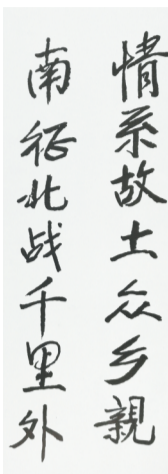 情系故土众乡親
南征北战千里外